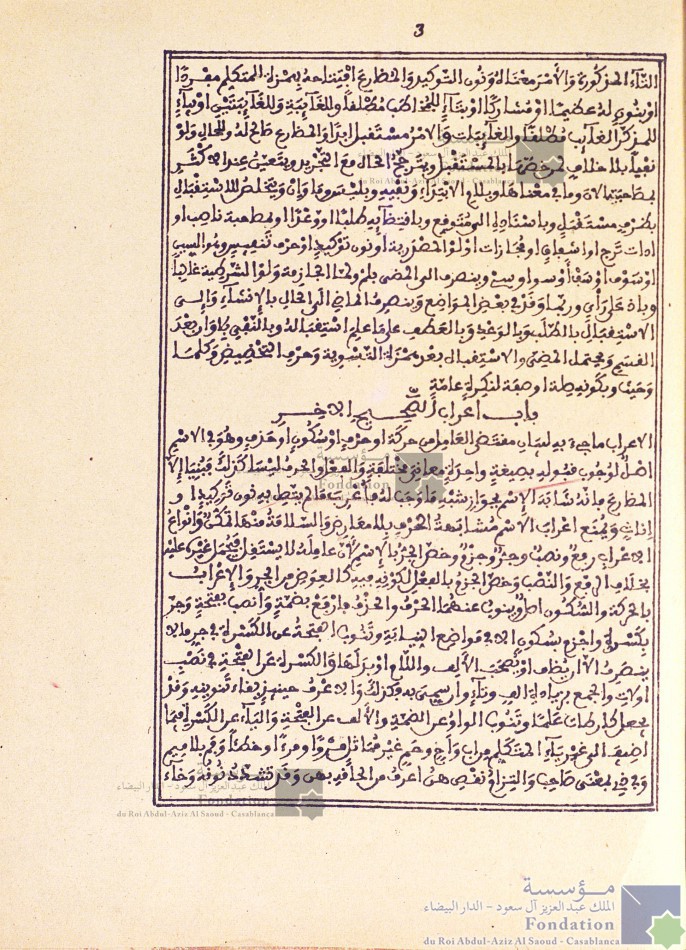 3
التاء المذكورة والأمر معناه ونون التوكيد والمضارع افتتاحه بهمزة المتكلم مفردا
او بنون له عظيما او مشاركا او بتاء للمخاطب مطلقا وللغائبة وللغائبتين او بياء
للمذكر الغائب مطلقا والغائبات والامر مستقبل ابدا والمضارع صالح له وللحال ولو
نفي بلا خلافا لمن خصها بالمستقبل ويترجح الحال مع التجريد ويتعين عند الاكثر
بمصاحبة الان وما في معناها وبلام الابتداء ونفيه بليس وما وان ويتخلص للاستقبال
بظرف مستقبل وباسناد الى متوقع وباقتضائه طلبا او وعدا او بمصاحبة ناصب او
اداة ترج او اشفاق او مجازات او لو المصدرية او نون توكيد او حرف تنفيس وهو السين
او سوف او سف أو سو او سي وينصرف الى المضى بلم ولما الجازمة ولو الشرطية غالبا
وباذ على رأي وربما وقد في بعض المواضع وينصرف الماضي الى الحال بالإنشاء وإلى
الاستقبال بالطلب وبالوعد وبالعطف على ما علم استقباله وبالنفي بلا وان بعد
القسم ويحتمل المضي والاستقبال بعد همزة التسوية وحرف التخصيص وكلما
وحيث وبكونه صلة او صفة لنكرة عامة
باب اعراب الصحيح الاخر
الاعراب ما جيء به لبيان مقتضى العامل من حركة او حرف او سكون او حذف وهو في الاسم
اصل لوجوب قبوله بصيغة واحدة معاني مختلفة والفعل والحرف ليسا كذلك فبنيا إلا
المضارع فانه شابه الإسم بجواز شبه ما وجب له فأعرب ما لم يتصل به نون توكيد او
اناث ويمنع اعراب الاسم مشابهة الحرف بلا معارض والسلامة منها تمكن وانواع
الاعراب رفع ونصب وجر وجزم وخص الجر بالإسم لأن عامله لا يستقل فيحمل غيره عليه
بخلاف الرفع والنصب وخص الجزم بالفعل لكونه فيه كالعوض من الجر والإعراب
بالحركة والسكون اصل وينوب عنهما الحرف والحذف فارفع بضمة وانصب بفتحة وجر
بكسرة واجزم بسكون الا في مواضع النيابة وتنوب الفتحة عن الكسرة في جر ما لا
ينصرف الا ان يضاف او يصحب الالف واللام او بدلها والكسرة عن الفتحة في نصب
اولات والجمع بزيادة الف وتاء وان سمي به فكذلك والاعرف حينئذ بقاء تنوينه وقد
يجعل كارطاة علما وتنوب الواو عن الضمة والألف عن الفتحة والياء عن الكسرة فيما
اضيف الى غير ياء المتكلم من اب واخ وحم غير مماثل قروا وقرءا وخطأ وفم بلا ميم
وفي ذي بمعنى صاحب والتزم نقص هن اعرف من الحاقه بهن وقد تشدد نونه وخاء